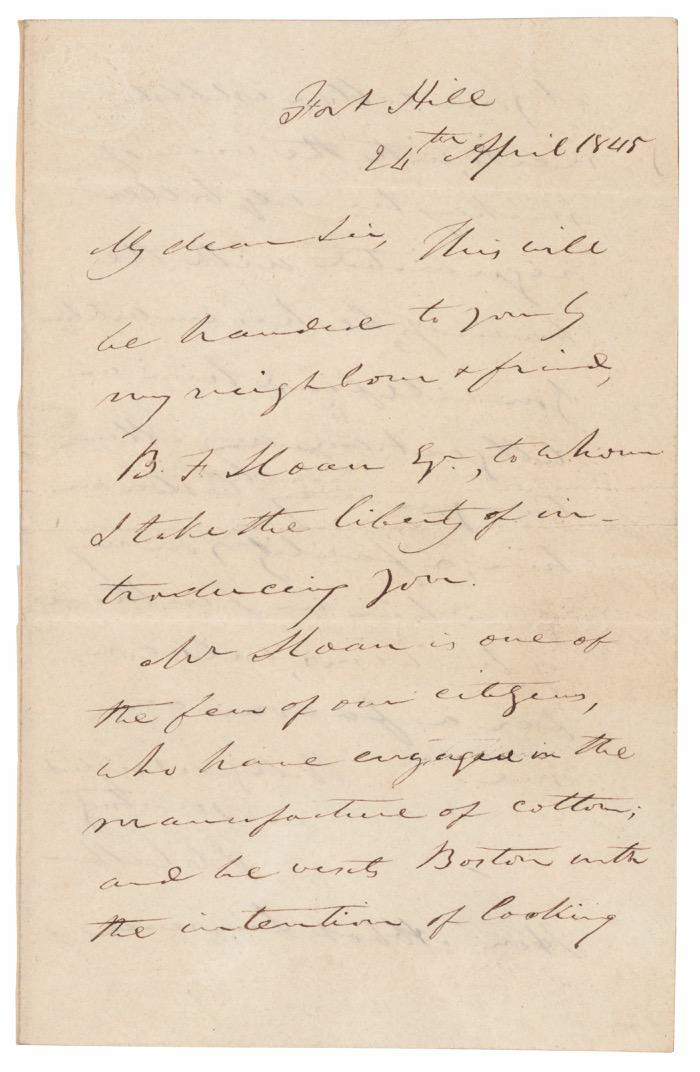 Fort Hill
24th April 1845
My dear Sir, This will
be handed to you by
my neighbour & friend,
B. F. Sloan Esqr., to whom
I take the liberty of in-
troducing you.
Mr Sloan is one of
the few of our citizens,
who have engaged in the
manufacture of cotton;
and he visits Boston with
the intention of looking